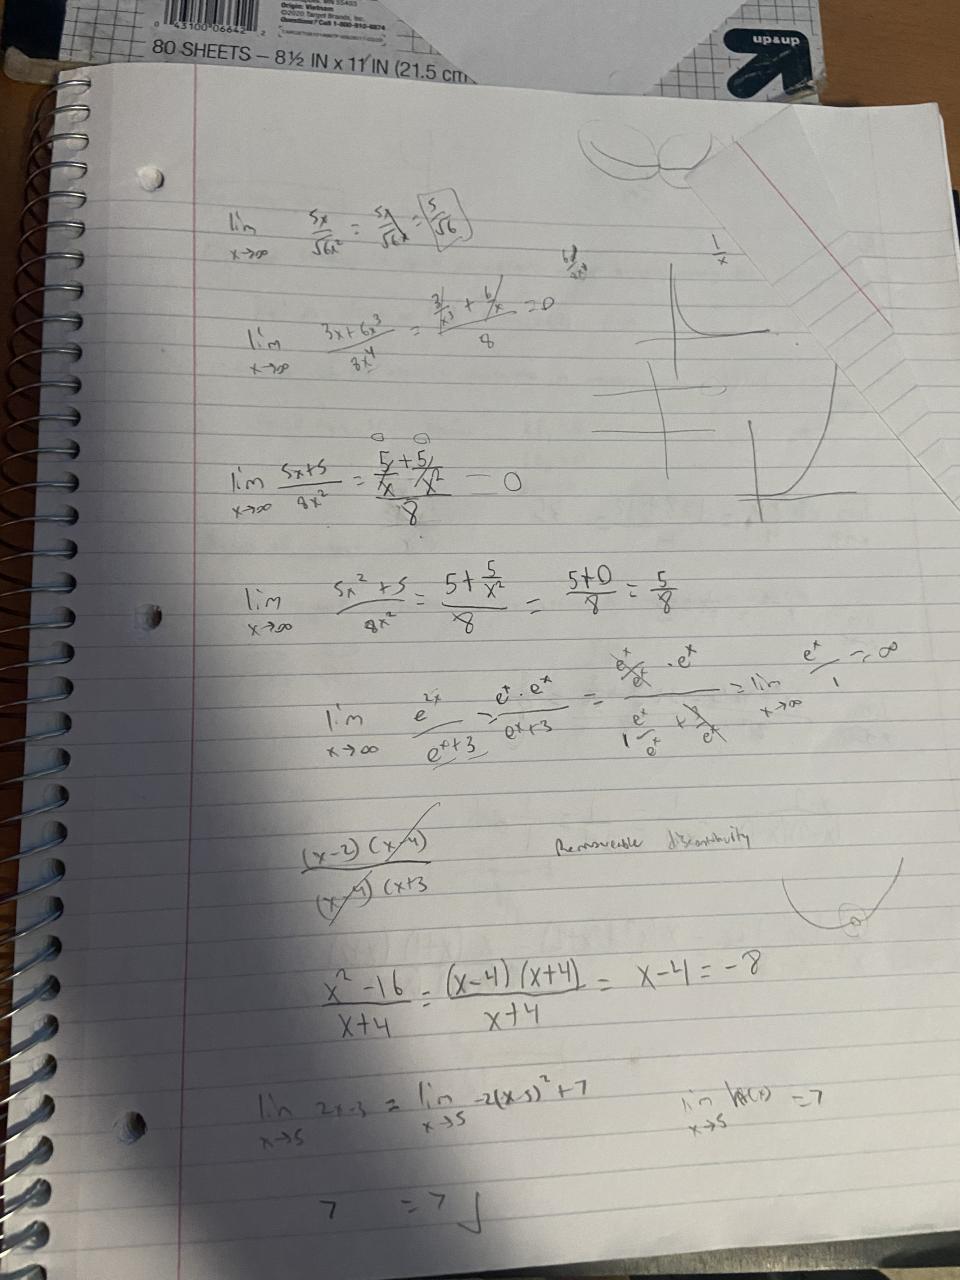 MN 55403
Origin: Vietnam
©2020 Target Brands, Inc.
Questions? Call 1-800-910-6874
0 43100 06642 2
80 SHEETS – 8½ IN x 11 IN (21.5 cm
up&up
lim x→∞ 5x/√6x² = 5x/√6x = 5/√6
1/x
lim x→∞ (3x+6x³)/8x⁴ = (3/x³ + 6/x)/8 = 0
0 0
lim x→∞ (5x+5)/8x² = (5/x + 5/x²)/8 = 0
lim x→∞ (5x²+5)/8x² = (5 + 5/x²)/8 = (5+0)/8 = 5/8
lim x→∞ e²ˣ/(eˣ+3) = (eˣ · eˣ)/(eˣ+3) = (eˣ/eˣ · eˣ)/(1 eˣ/eˣ + 3/eˣ) = lim x→∞ eˣ/1 = ∞
(x-2)(x-4)/(x-4)(x+3 Removeable discontinuity
(x²-16)/(x+4) = (x-4)(x+4)/(x+4) = x-4 = -8
lim x→5 2x-3 = lim x→5 -2(x-5)²+7 lim x→5 (x) = 7
7 = 7